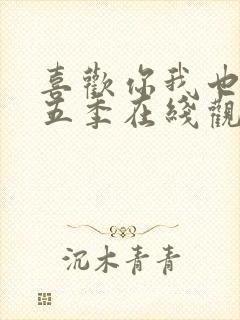 喜歡你我也
五季在綫觀
沉木青青